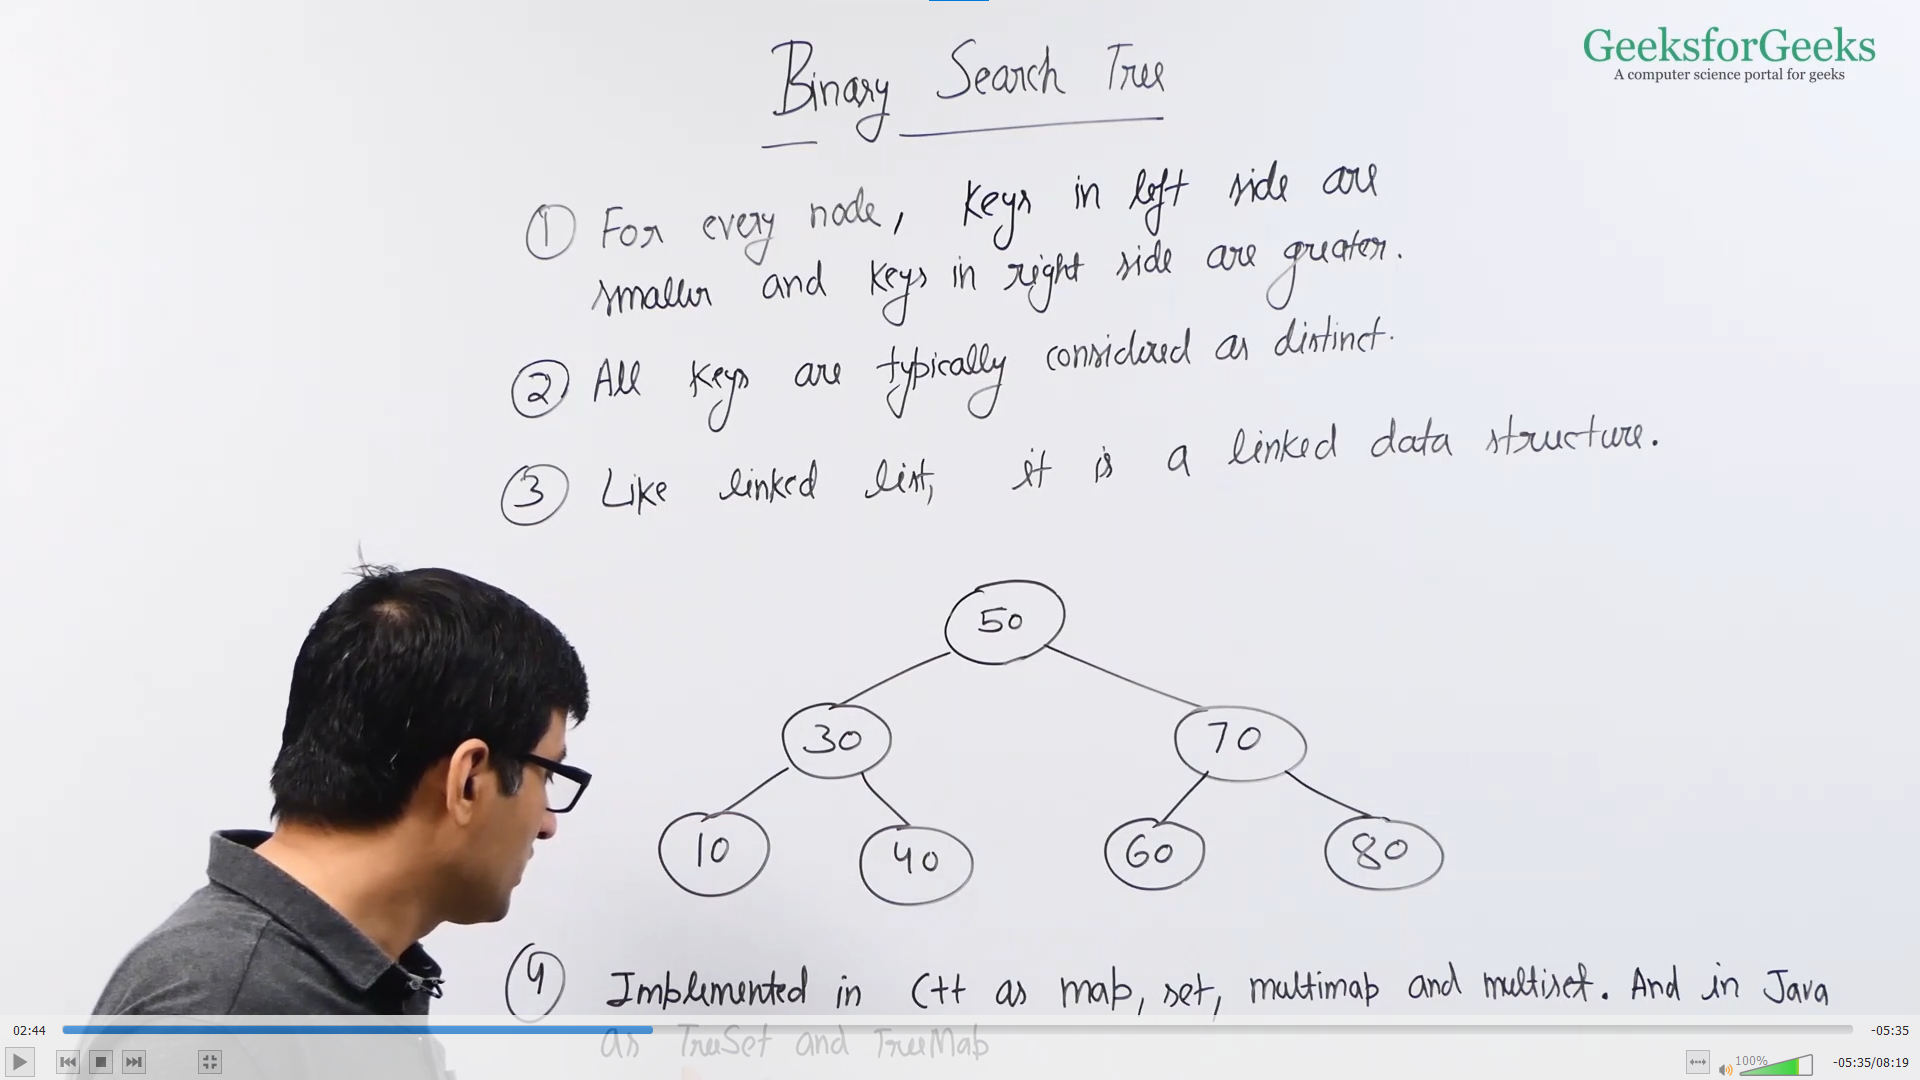 GeeksforGeeks
A computer science portal for geeks
Binary Search Tree
① For every node, keys in left side are
smaller and keys in right side are greater.
② All keys are typically considered as distinct.
③ Like linked list, it is a linked data structure.
50
30 70
10 40 60 80
④ Implemented in C++ as map, set, multimap and multiset. And in Java
as TreeSet and TreeMap
02:44 -05:35
100% -05:35/08:19